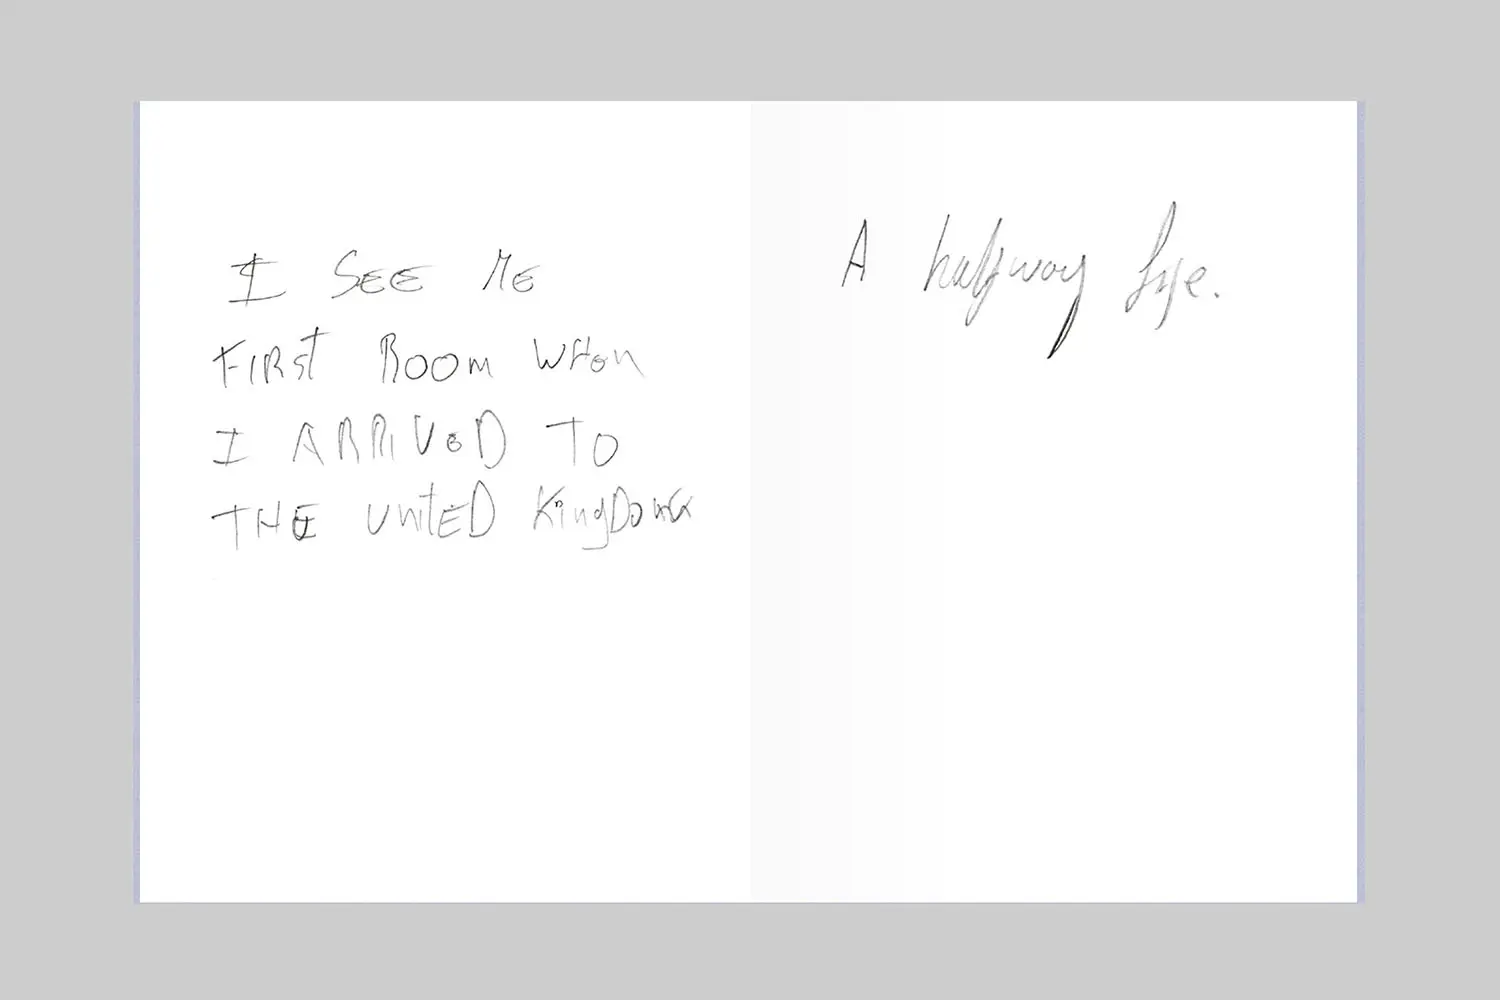 I SEE ME
FIRST ROOM WHen
I ARRIVeD TO
THE UnitED KingDom
A halfway life.